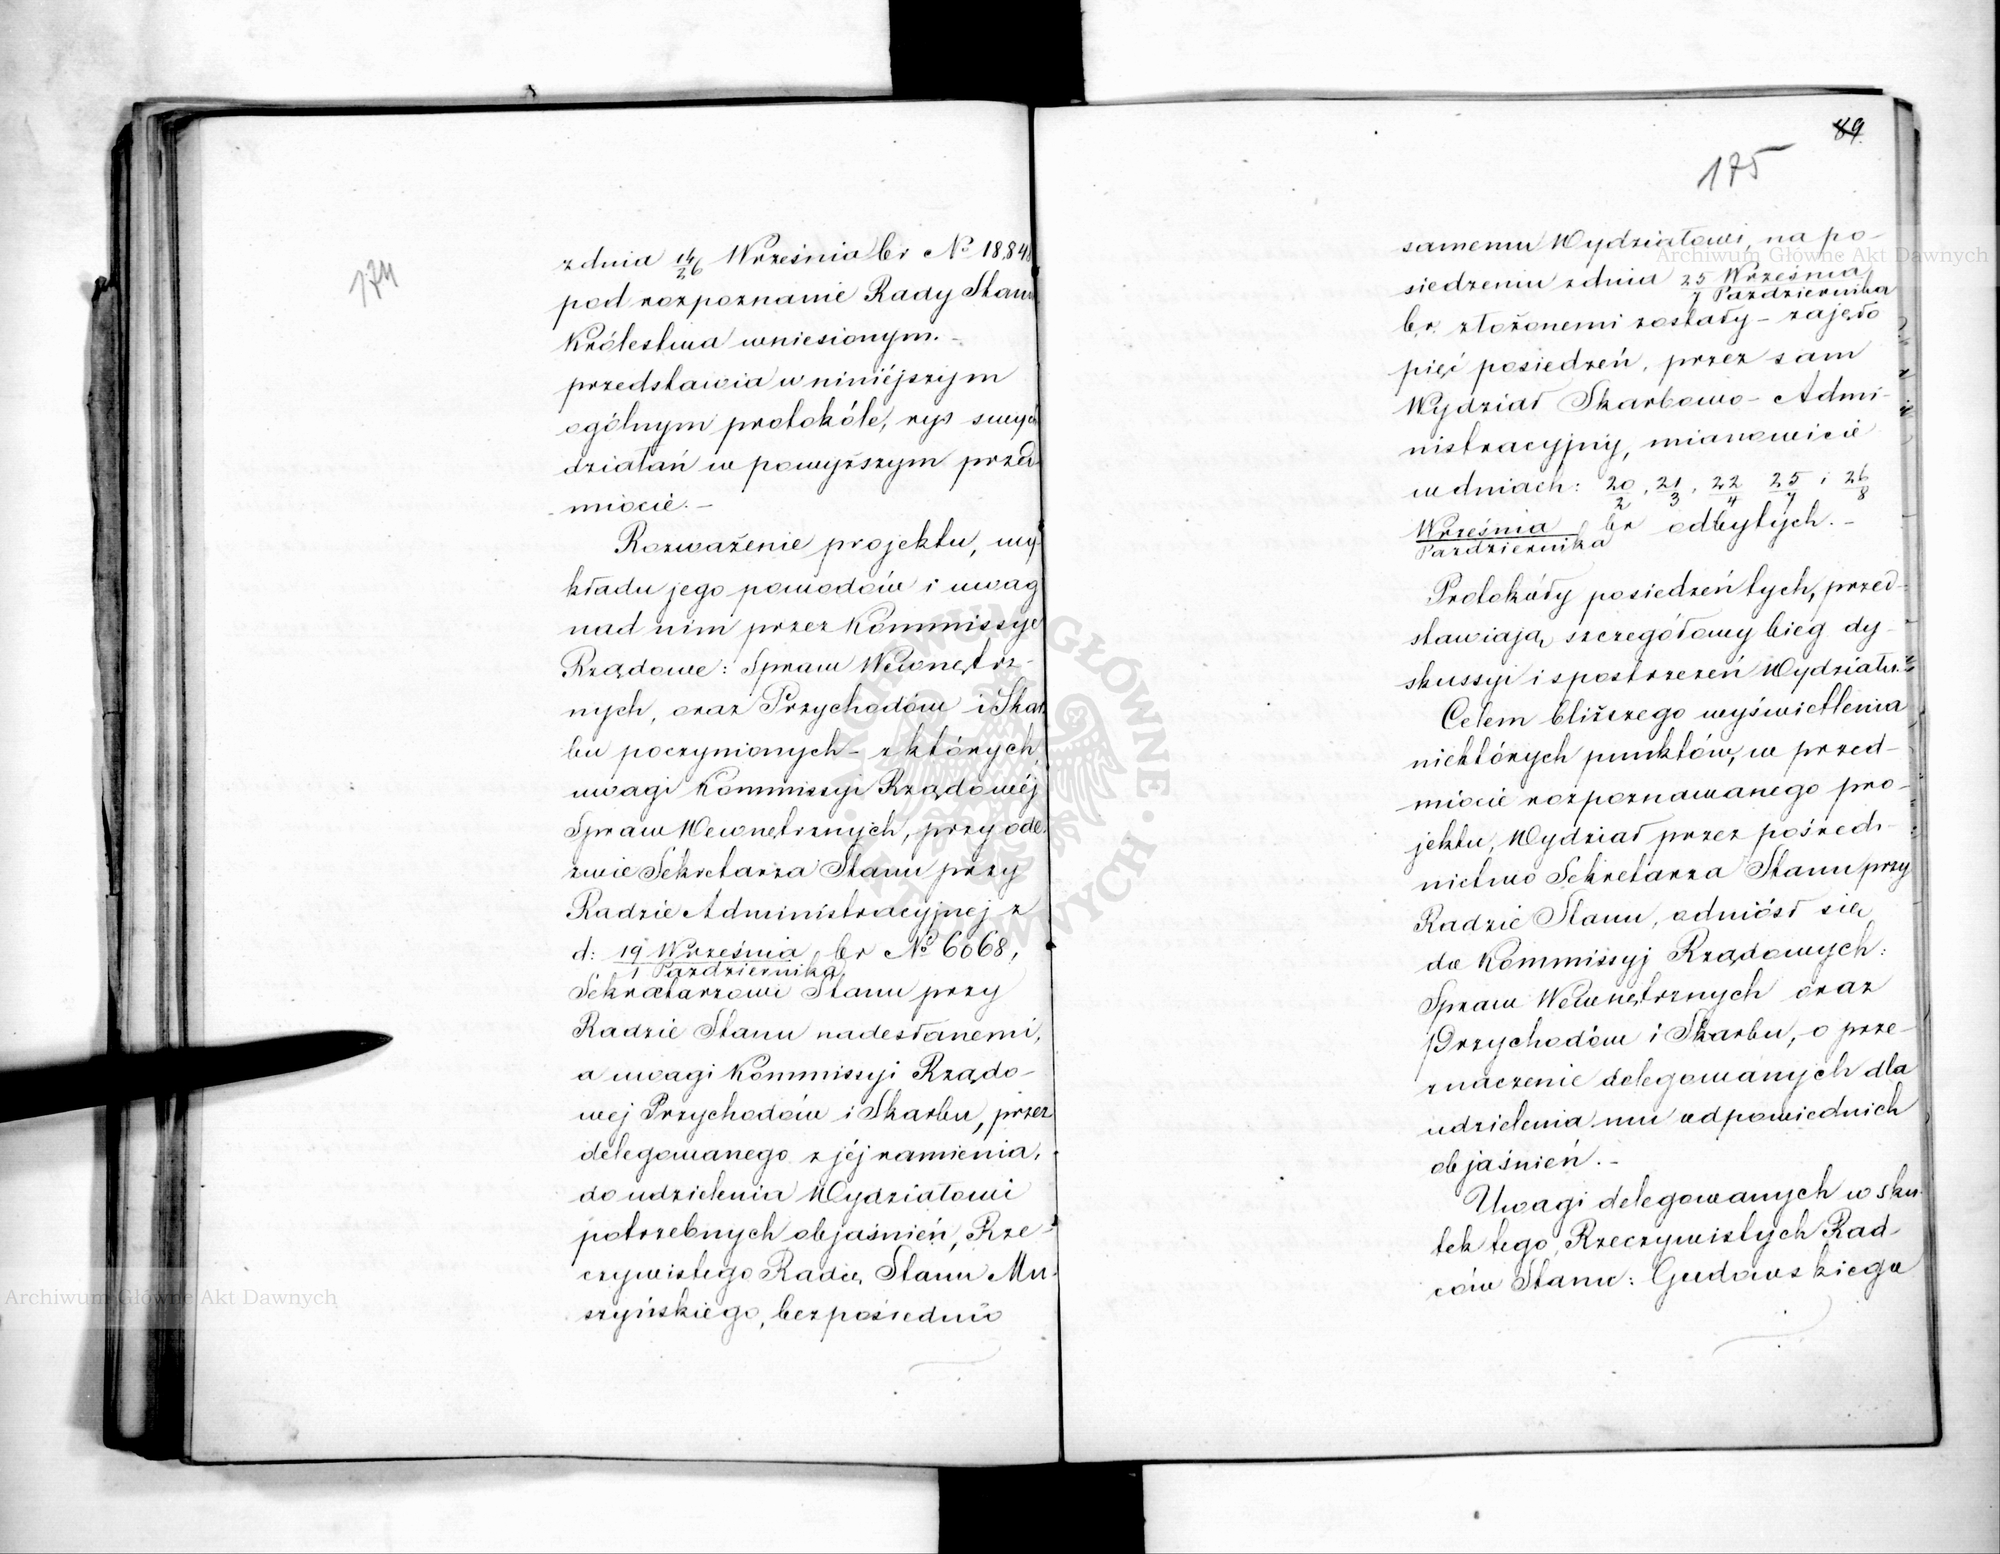 174
z dnia 14/26 Września br No 18848
pod rozpoznanie Rady Stanu
Królestwa wniesionym. –
przedstawia w niniéjszym
ogólnym protokóle, rys swych
działań w powyższym przed-
miocie. –
Rozważenie projektu, wy-
kładu jego powodów i uwag
nad nim przez Kommissye
Rządowe: Spraw Wewnętrz-
nych, oraz Przychodów i Skar-
bu poczynionych – z których,
uwagi Kommissyi Rządowéj
Spraw Wewnętrznych, przy ode-
zwie Sekretarza Stanu przy
Radzie Administracyjnej z
d: 19 Września / 1 Października br No 6068,
Sekretarzowi Stanu przy
Radzie Stanu nadesłanemi,
a uwagi Kommissyi Rządo-
wej Przychodów i Skarbu, przez
delegowanego z jéj ramienia,
do udzielenia Wydziałowi
potrzebnych objaśnień, Rze-
czywistego Radcę Stanu Mu-
szyńskiego, bezpośrednio
89.
175
samemu Wydziałowi, na po-
siedzeniu z dnia 25 Września / 7 Października
b.r. złożonemi zostały – zajęło
pięć posiedzeń, przez sam
Wydział Skarbowo – Admi-
nistracyjny, mianowicie
w dniach: 20/2, 21/3, 22/4 25/7 i 26/8
Września / Października br odbytych. –
Protokóły posiedzeń tych, przed-
stawiają szczegółowy bieg dy-
skussyi i spostrzeżeń Wydziału.
Celem bliższego wyświetlenia
niektórych punktów, w przed-
miocie rozpoznawanego pro-
jektu, Wydział przez pośred-
nictwo Sekretarza Stanu przy
Radzie Stanu, odniósł się
do Kommissyj Rządowych:
Spraw Wewnętrznych oraz
Przychodów i Skarbu, o prze-
znaczenie delegowanych dla
udzielenia mu odpowiednich
objaśnień. –
Uwagi delegowanych w sku-
tek tego, Rzeczywistych Rad-
ców Stanu: Gudowskiego
Archiwum Główne Akt Dawnych
Archiwum Główne Akt Dawnych
ARCHIWUM GŁÓWNE AKT DAWNYCH